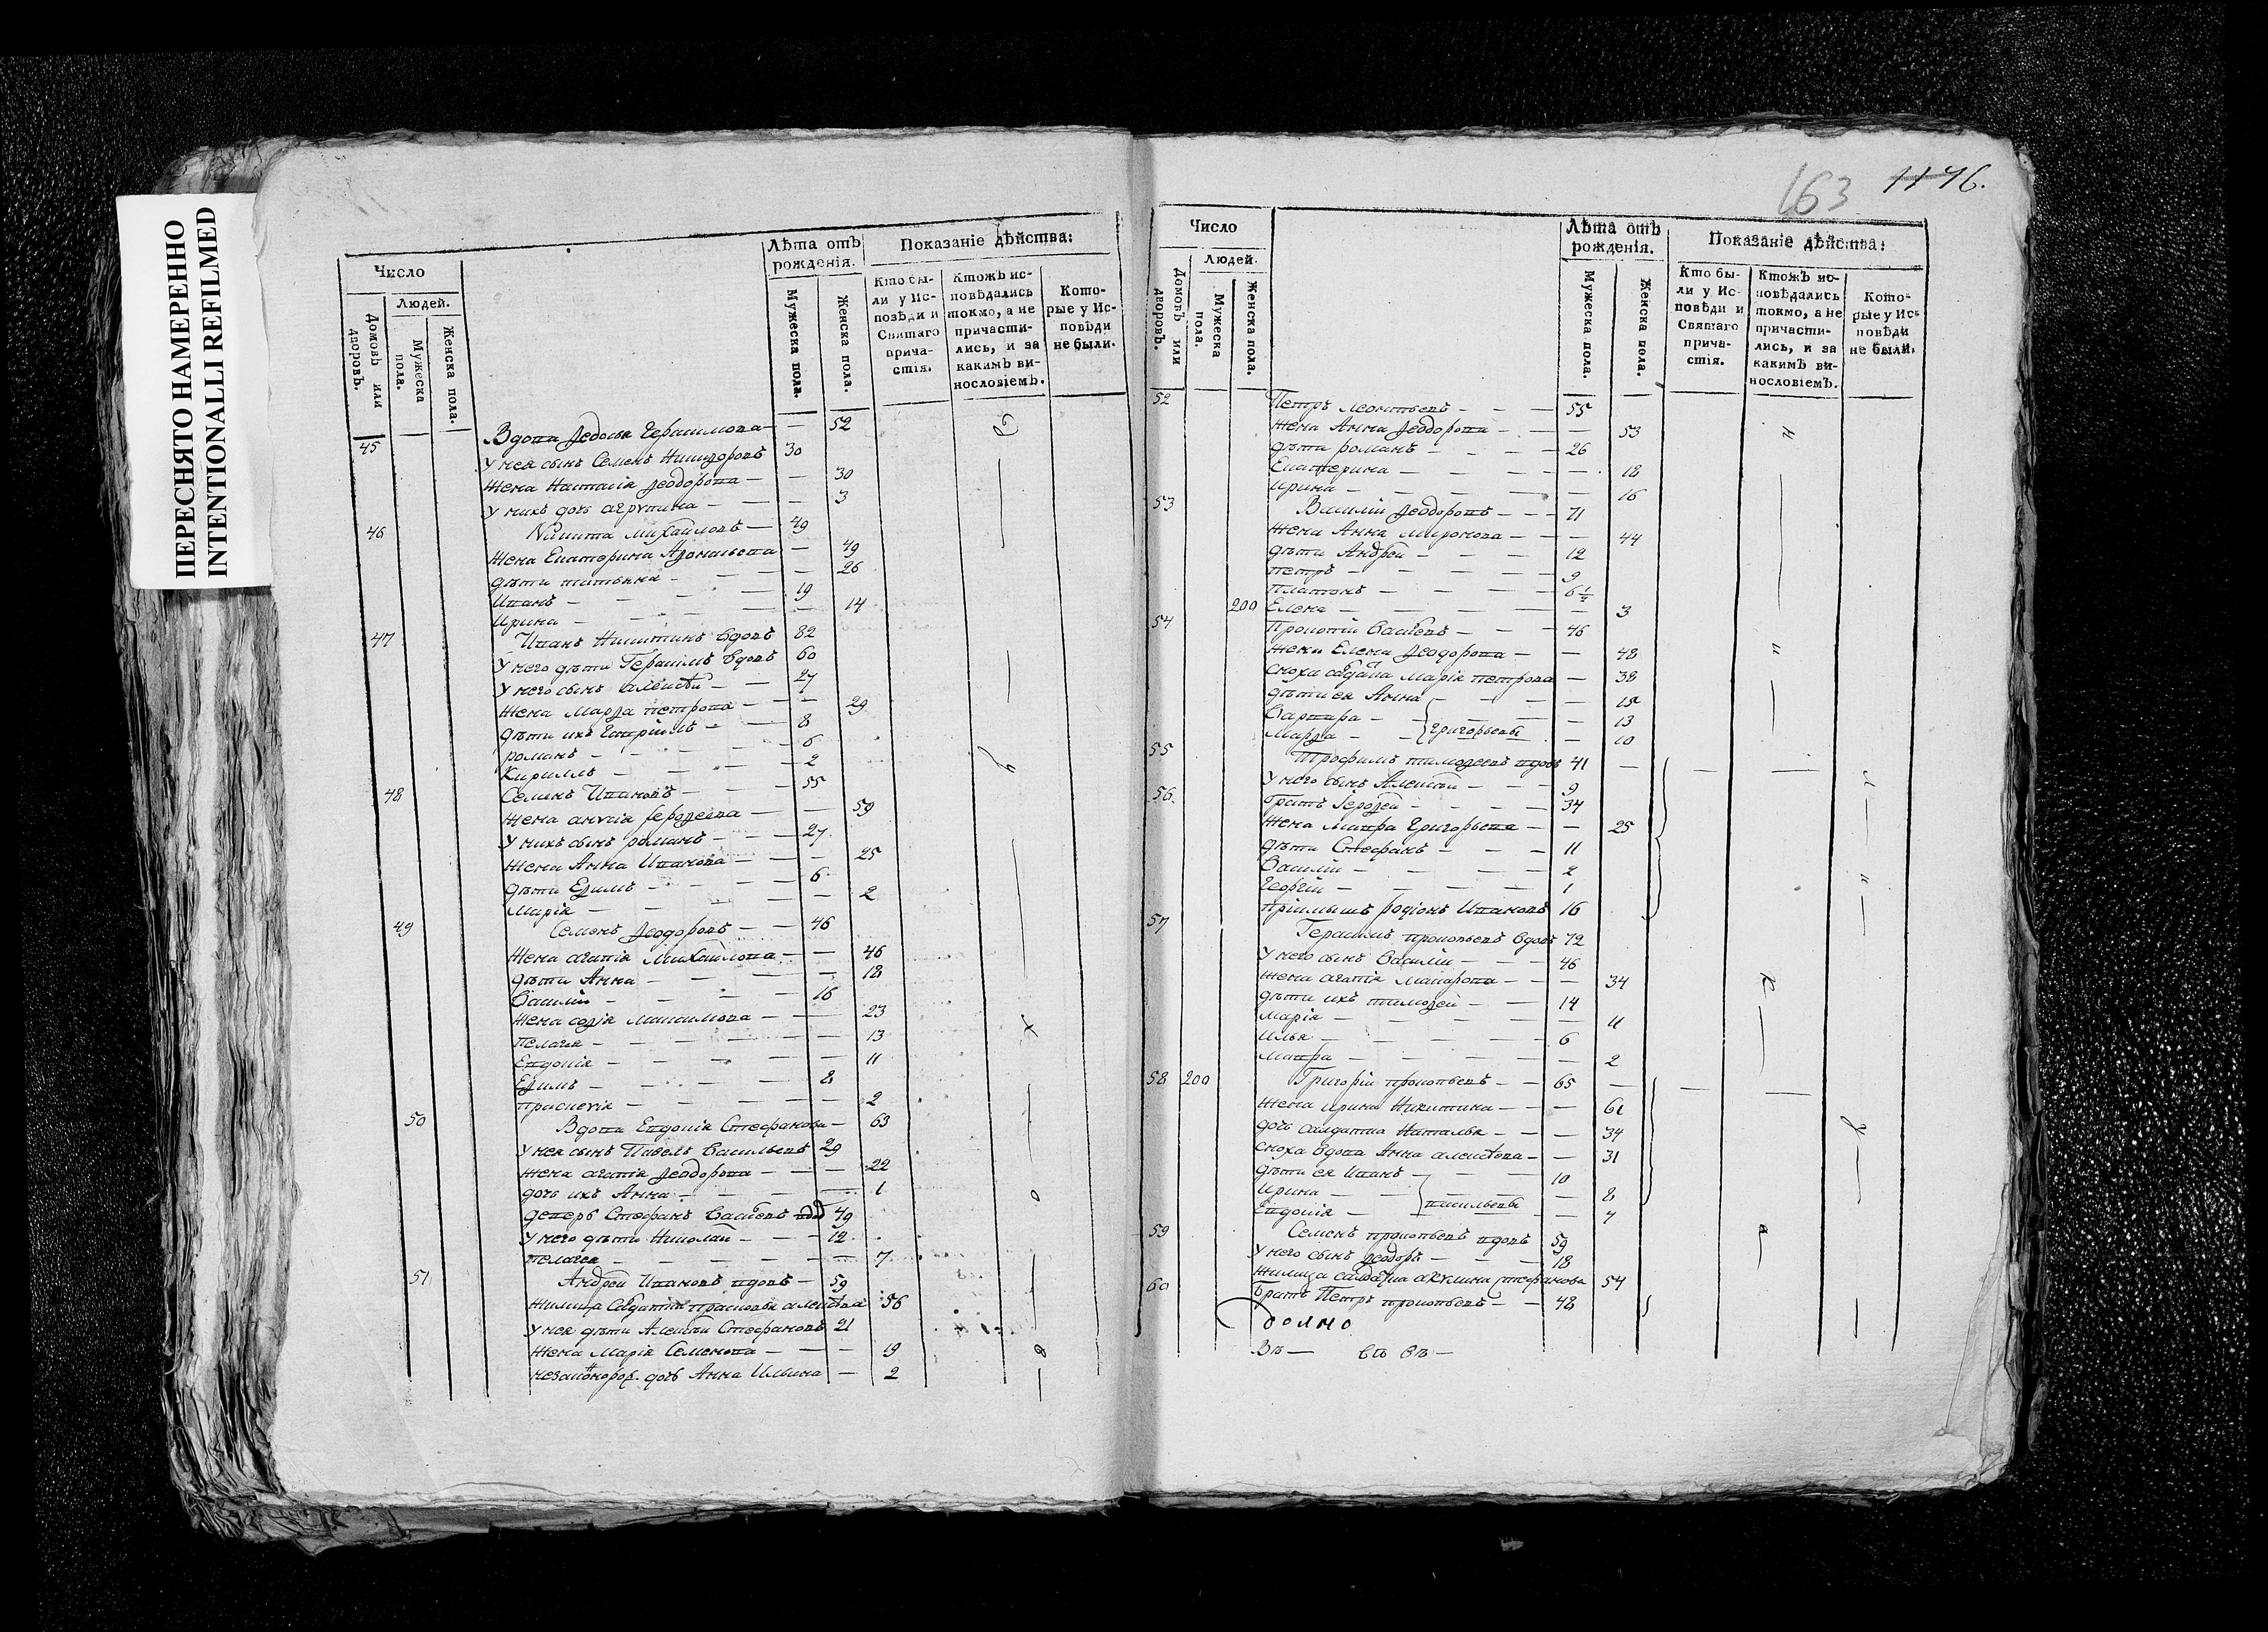 ПЕРЕСНЯТО НАМЕРЕННО
INTENTIONALLI REFILMED
Число
Людей.
Домовъ или дворовъ.
Мужеска пола.
Женска пола.
Лѣта отъ рожденія.
Мужеска пола.
Женска пола.
Показаніе дѣйства:
Кто были у Исповѣди и Святаго причастія.
Ктожъ исповѣдались токмо, а не причастились, и за какимъ винословіемъ.
Которые у Исповѣди не были.
45 Вдова Ѳедосья Герасимова — — 52
У нея сынъ Семенъ 30
Жена Наталія Ѳеодорова — — 30
У нихъ дочь — — 3
46 Никита Михайловъ — 49
Жена Екатерина — 49
дѣти Татьяна — — 26
Иванъ — — 19
Ирина — — 14
47 Иванъ Никитинъ вдовъ 82
У него дѣти Герасимъ вдовъ 60
У него сынъ Алексѣй — 27
Жена Марѳа Петрова — — 29
дѣти ихъ Гавріилъ — 8
Романъ — — 6
Кириллъ — — 2
48 Семенъ Ивановъ — 55
Жена — — 59
У нихъ сынъ Романъ — — 27
Жена Анна Иванова — — 25
дѣти Ефимъ — — 6
Марія — — 2
49 Семенъ Ѳеодоровъ — 46
Жена Агапія Михайлова — — 46
дѣти Анна — — 18
Василій — — 16
Жена Софія Максимова — — 23
Пелагея — — 13
Евдокія — — 11
Ефимъ — — 8
Праскевія — — 2
50 Вдова Евдокія Стефанова — 63
У нея сынъ Павелъ Васильевъ 29
Жена Агапія Ѳеодорова — — 22
дочь ихъ Анна — — 1
деверь Стефанъ 49
У него дѣти Николай — — 12
Пелагея — — 7
51 Андрей Ивановъ вдовъ — 59
Жилица Прасковья Алексѣева 56
У нея дѣти Алексѣй Стефановъ 21
Жена Марія Семенова — — 19
дочь Анна Ильина — 2
163 1146.
Число
Людей.
Домовъ или дворовъ.
Мужеска пола.
Женска пола.
Лѣта отъ рожденія.
Мужеска пола.
Женска пола.
Показаніе дѣйства:
Кто были у Исповѣди и Святаго причастія.
Ктожъ исповѣдались токмо, а не причастились, и за какимъ винословіемъ.
Которые у Исповѣди не были.
52 Петръ Леонтьевъ — — 55
Жена Анна Ѳеодорова — — 53
дѣти Романъ — — 26
Екатерина — — 18
Ирина — — 16
53 Василій Ѳеодоровъ — — 71
Жена Анна Миронова — — 44
дѣти Андрей — — 12
Петръ — — 9
Платонъ — — 6
200 Елена — — 3
54 Прокопій — — 46
Жена Елена Ѳеодорова — — 48
сноха Марія Петрова — 38
дѣти ея Анна — — 15
Варвара — — 13
Марѳа — Григорьевы — 10
55 Трофимъ Тимофеевъ вдовъ 41
У него сынъ Алексѣй — — 9
56. братъ — — 34
Жена Мавра Григорьева — — 25
дѣти Стефанъ — — 11
Василій — — 2
Георгій — — 1
Пріимышъ Родіонъ Ивановъ 16
57 Герасимъ Прокопьевъ вдовъ 72
У него сынъ Василій — — 46
Жена Агапія Макарова — — 34
дѣти ихъ Тимофей — — 14
Марія — — 11
Илья — — 6
Мавра — — 2
58 200 Григорій Прокопьевъ — — 65
Жена Ирина Никитина — — 61
дочь солдатка Наталья — — 34
сноха вдова Анна Алексѣева — — 31
дѣти ея Иванъ — 10
Ирина — — 8
Евдокія — Васильевы — 4
59 Семенъ Прокопьевъ вдовъ 59
У него сынъ Ѳеодоръ — — 18
Жилица солдатка Акулина Стефанова 54
60 братъ Петръ Прокопьевъ — — 48